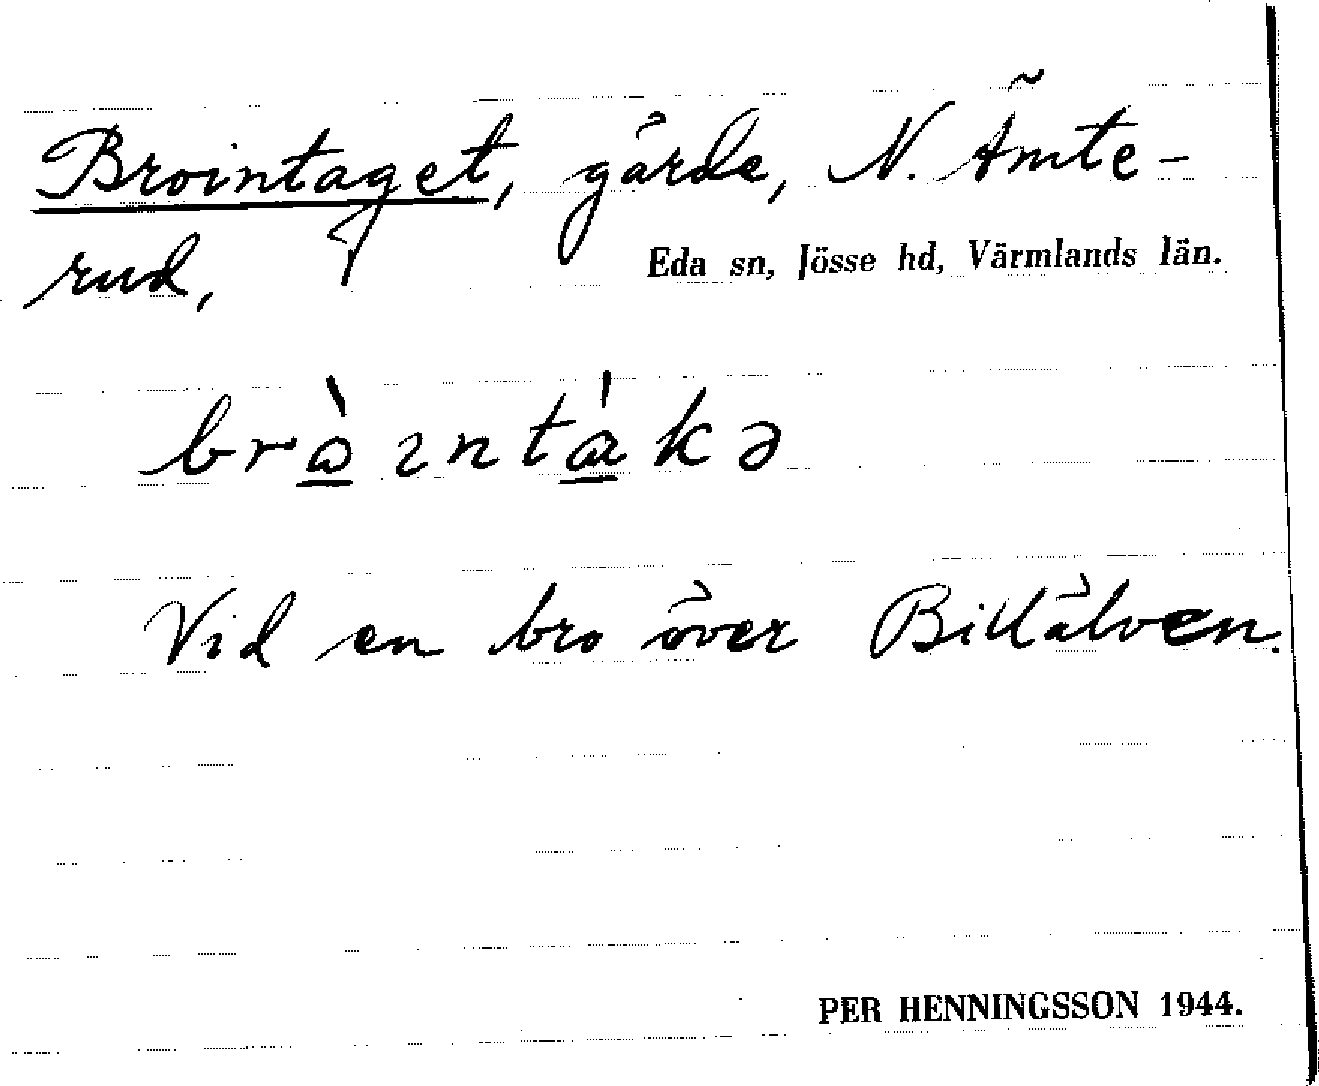 Brointaget, gärde, N. Ämte-
rud,
Eda sn, Jösse hd, Värmlands län.
Vid en bro över Billälven.
PER HENNINGSSON 1944.